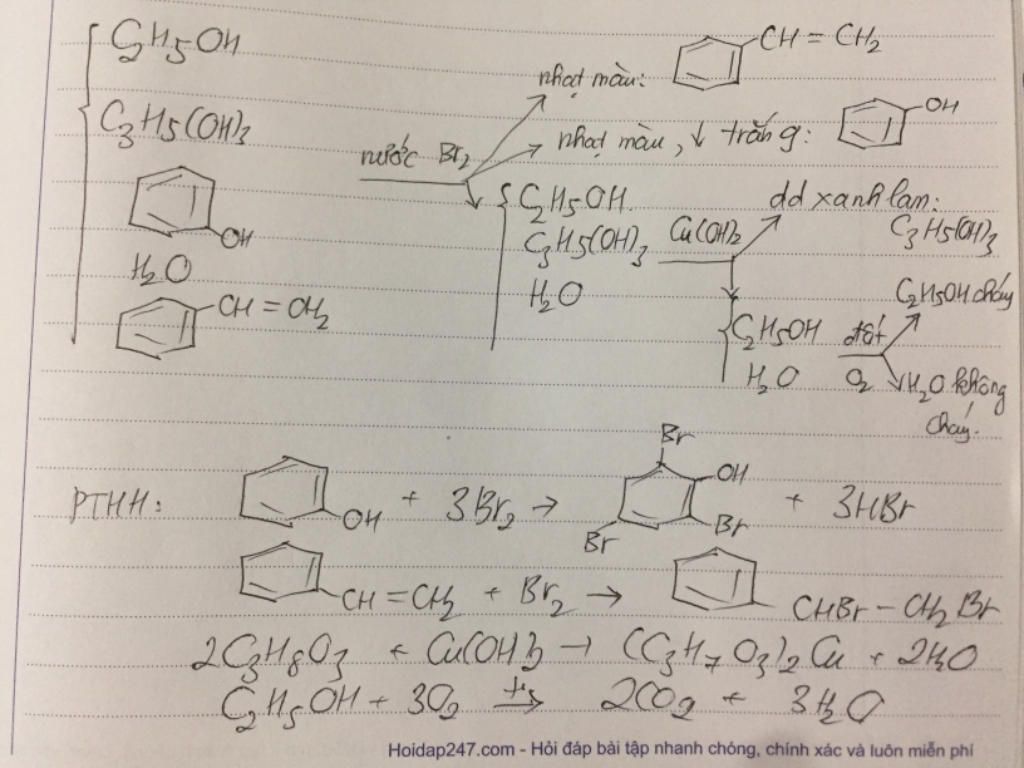 C2H5OH
C3H5(OH)3
OH
H2O
CH = CH2
nước Br2
nhạt màu:
CH = CH2
nhạt màu, ↓ trắng:
OH
C2H5OH.
C3H5(OH)3
H2O
Cu(OH)2
dd xanh lam:
C3H5(OH)3
C2H5OH
H2O
đốt
O2
C2H5OH cháy
H2O không
cháy.
PTHH:
OH + 3Br2 → Br OH Br Br + 3HBr
CH = CH2 + Br2 → CHBr - CH2Br
2C3H8O3 + Cu(OH)2 → (C3H7O3)2Cu + 2H2O
C2H5OH + 3O2 →(to) 2CO2 + 3H2O
Hoidap247.com - Hỏi đáp bài tập nhanh chóng, chính xác và luôn miễn phí